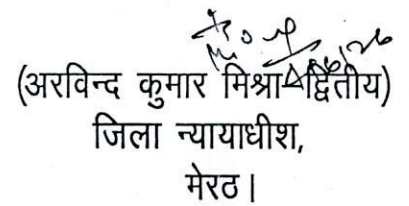 (अरविन्द कुमार मिश्रा-द्वितीय)
जिला न्यायाधीश,
मेरठ।